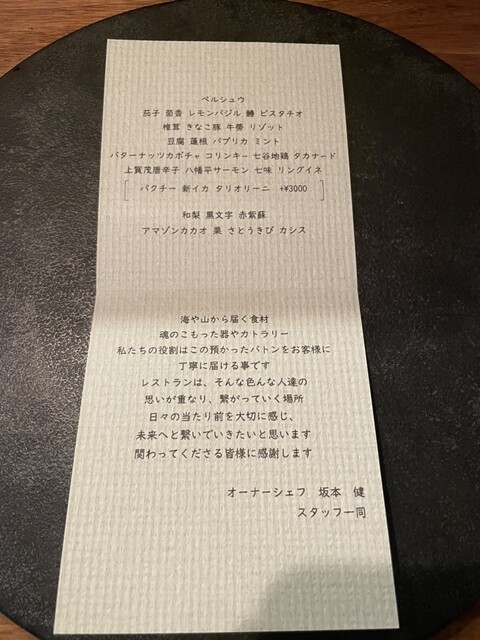 ペルシュウ
茄子 茴香 レモンバジル 鰆 ピスタチオ
椎茸 きなこ豚 牛蒡 リゾット
豆腐 蓮根 パプリカ ミント
バターナッツカボチャ コリンキー 七谷地鶏 タカナード
上賀茂唐辛子 八幡平サーモン 七味 リングイネ
パクチー 新イカ タリオリーニ +¥3000
和梨 黒文字 赤紫蘇
アマゾンカカオ 栗 さとうきび カシス
海や山から届く食材
魂のこもった器やカトラリー
私たちの役割はこの預かったバトンをお客様に
丁寧に届ける事です
レストランは、そんな色んな人達の
思いが重なり、繋がっていく場所
日々の当たり前を大切に感じ、
未来へと繋いでいきたいと思います
関わってくださる皆様に感謝します
オーナーシェフ 坂本 健
スタッフ一同